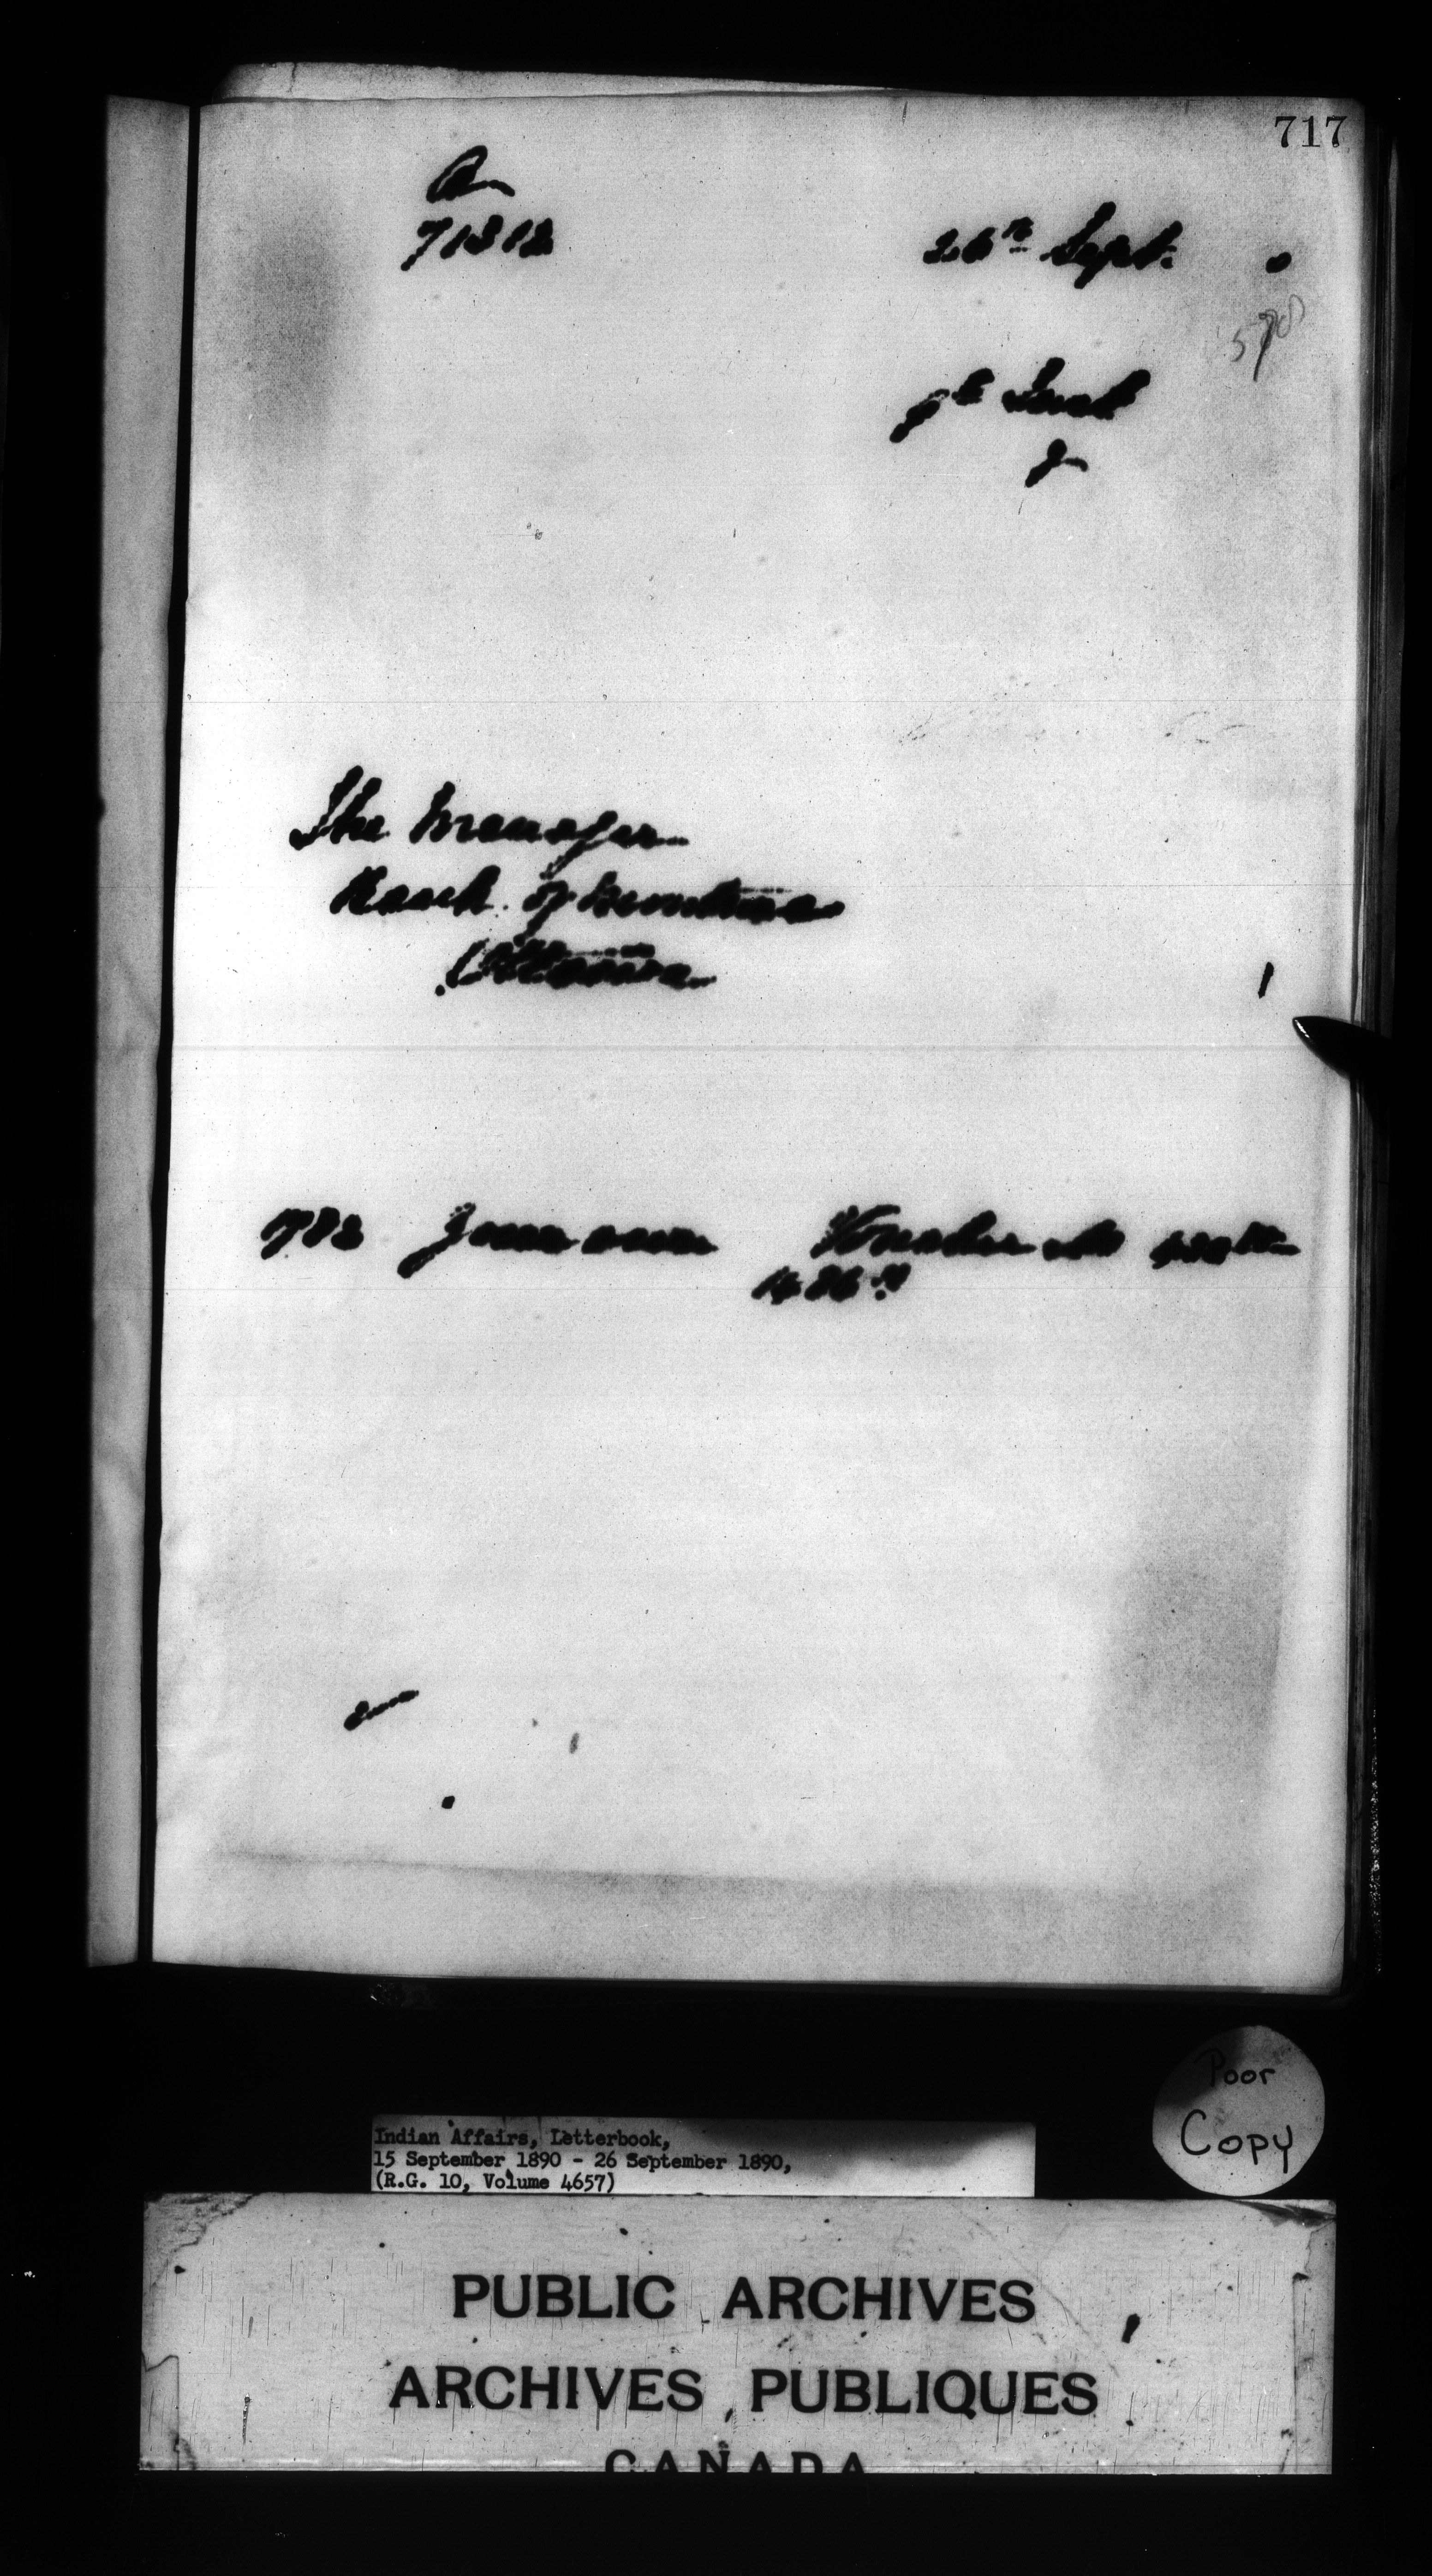 717
71312
26th Sept. 0
9th Inst
The Manager
Bank of Montreal
Ottawa
782
Voucher
Poor
Copy
Indian Affairs, Letterbook,
15 September 1890 - 26 September 1890,
(R.G. 10, Volume 4657)
PUBLIC ARCHIVES
ARCHIVES PUBLIQUES
CANADA